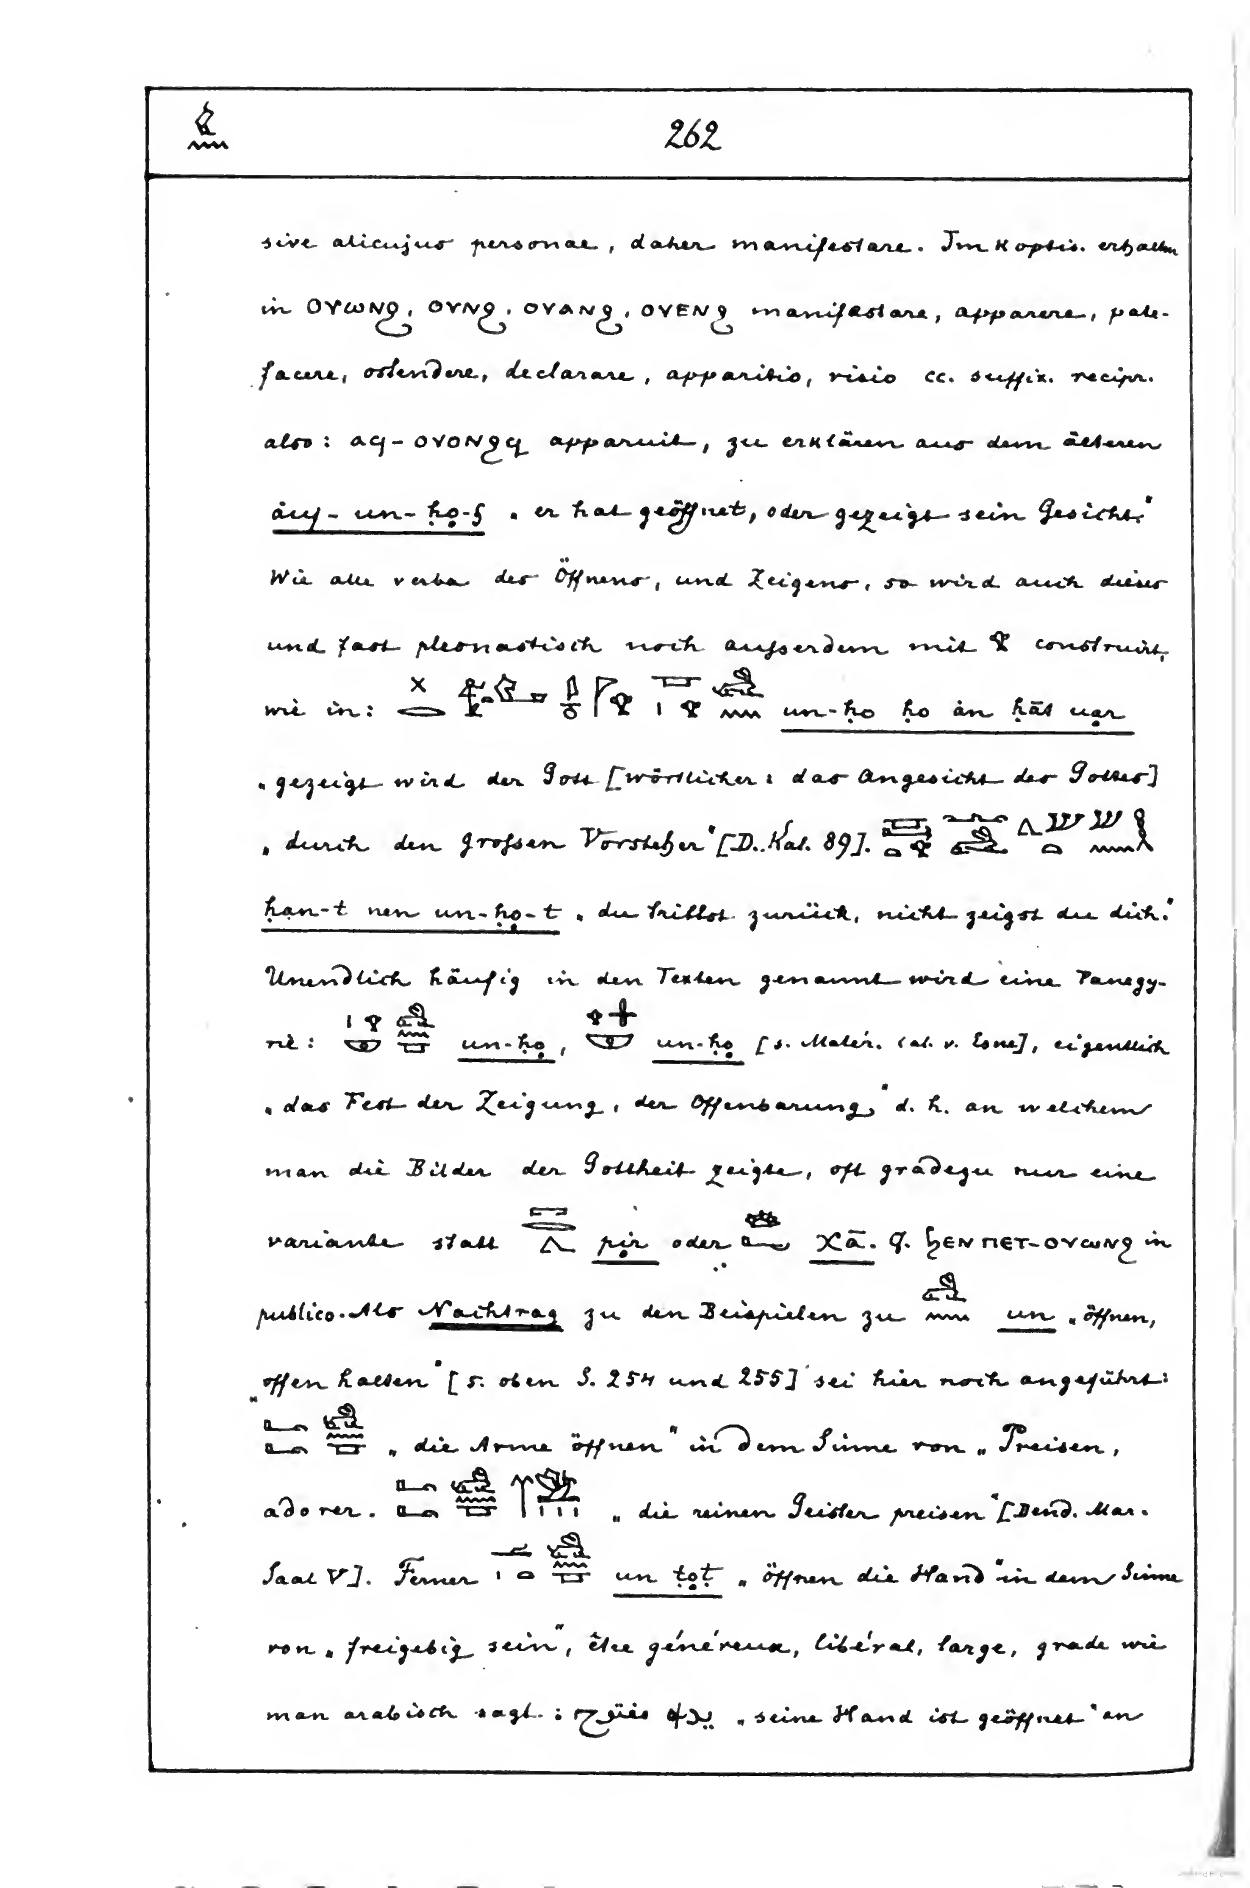 262
sive alicujus personae, daher manifestare. Im Koptis. erhalten
in ⲟⲩⲱⲛϩ, ⲟⲩⲛϩ, ⲟⲩⲁⲛϩ, ⲟⲩⲉⲛϩ manifestare, apparere, pate-
facere, ostendere, declarare, apparitio, visio cc. suffix. recipr.
also: ⲁϥ-ⲟⲩⲟⲛϩϥ apparuit, zu erklären aus dem älteren
un-ḥọ-f „er hat geöffnet, oder gezeigt sein Gesicht."
Wie alle verba des Öffnens, und Zeigens, so wird auch dieses
und fast pleonastisch noch außerdem mit 𓁷 construirt,
wie in: un-ḥo ḥo àn ḥāt uạr
„gezeigt wird der Gott [wörtlicher: das Angesicht des Gottes]
„durch den großen Vorsteher" [D. Kal. 89].
ḥạn-t nen un-ḥọ-t „du trittst zurück, nicht zeigst du dich."
Unendlich häufig in den Texten genannt wird eine Panegy-
rie: un-ḥọ, un-ḥọ [s. Matér. cal. v. Esne], eigentlich
„das Fest der Zeigung, der Offenbarung," d. h. an welchem
man die Bilder der Gottheit zeigte, oft gradezu nur eine
variante statt pịr oder χā. cf. ϧⲉⲛ ⲡⲉⲧ-ⲟⲩⲱⲛϩ in
publico. Als Nachtrag zu den Beispielen zu un „öffnen,
„offen halten" [s. oben S. 254 und 255] sei hier noch angeführt:
„die Arme öffnen" in dem Sinne von „Preisen,
adorer. „die reinen Geister preisen" [Dend. Mar.
Saal V]. Ferner un ṭoṭ „öffnen die Hand" in dem Sinne
von „freigebig sein", être généreux, libéral, large, grade wie
man arabisch sagt: يده مفتوح „seine Hand ist geöffnet" an